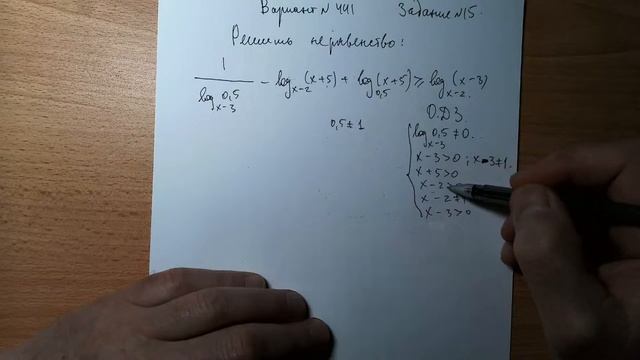 Вариант №441 Задание №15.
Решить неравенство:
1/log_{x-3} 0,5 - log_{x-2}(x+5) + log_{0,5}(x+5) ≥ log_{x-2}(x-3)
О.Д.З
0,5 ≠ 1
log_{x-3} 0,5 ≠ 0.
x-3>0; x-3≠1.
x+5>0
x-2
x-2≠1
x-3>0